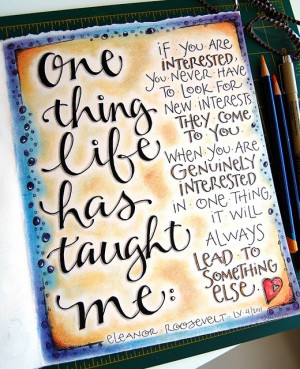 One
thing
life
has
taught
me:
if you are
interested,
you never have
to look for
new interests.
They come
to you.
When you are
genuinely
interested
in one thing,
it will
always
lead to
something
else.
Eleanor Roosevelt